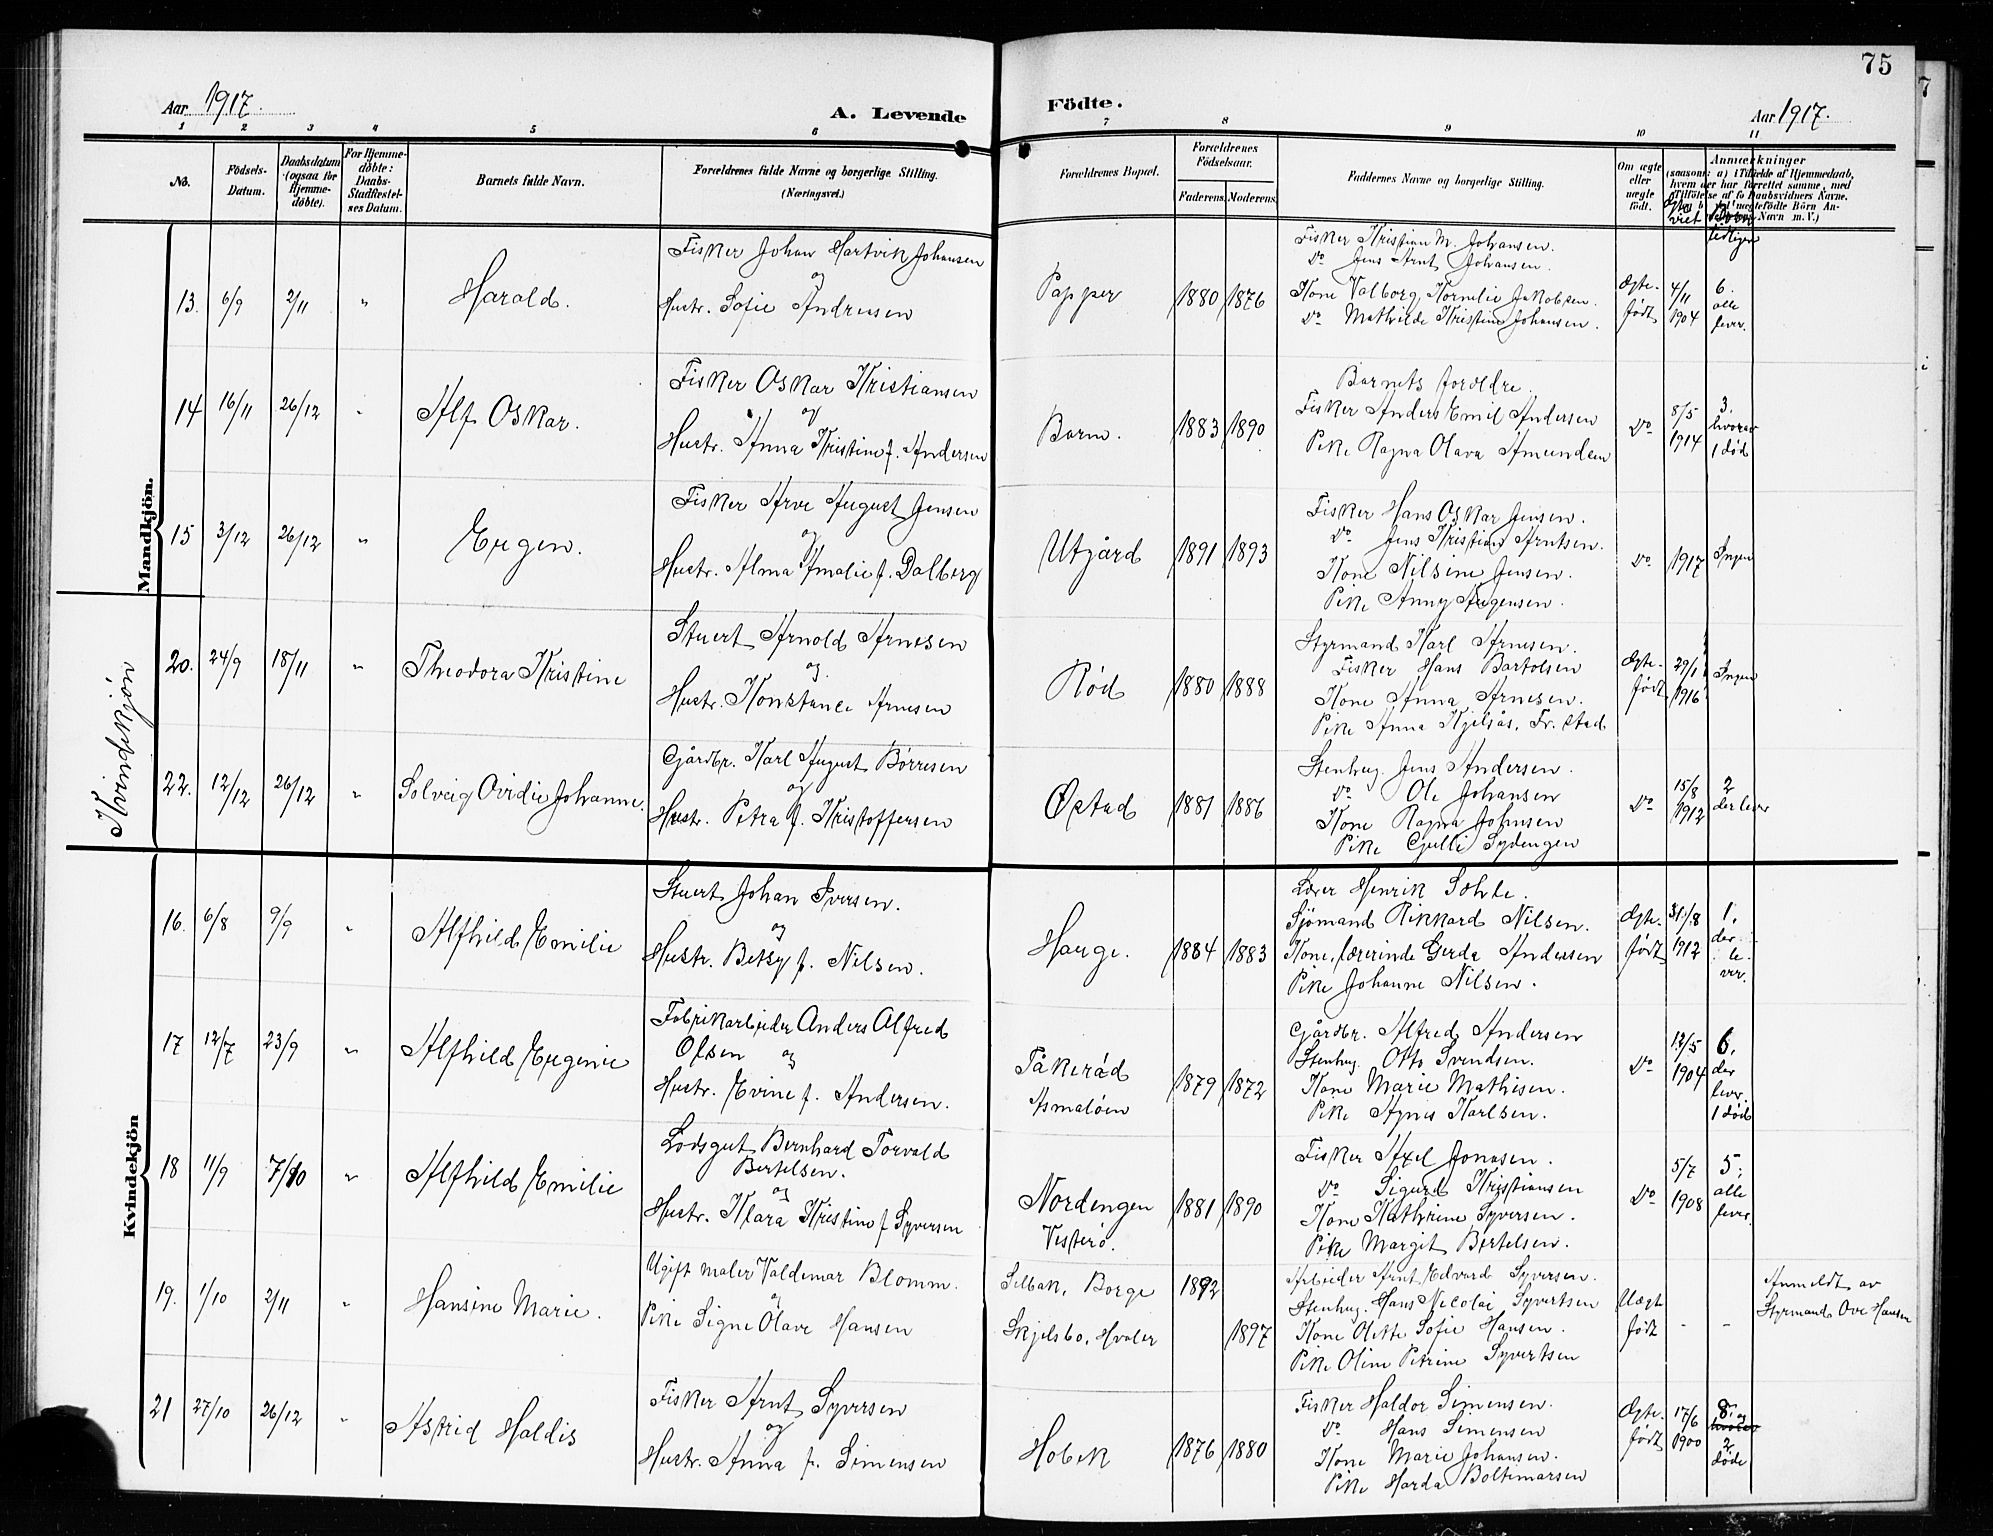 75
Aar 1917.
A. Levende
Födte.
Aar 1917.
1 2 3 4 5 6 7 8 9 10 11
No.
Födsels-
Datum.
Daabsdatum
(ogsaa for
Hjemme-
döbte).
For Hjemme-
döbte:
Daabs-
Stadfæstel-
ses Datum.
Barnets fulde Navn.
Forældrenes fulde Navne og borgerlige Stilling.
(Næringsvei.)
Forældrenes Bopæl.
Forældrenes
Födselsaar.
Faderens.
Moderens.
Faddernes Navne og borgerlige Stilling.
Om ægte
eller
uægte
født.
Anmærkninger
(saasom: a) i Tilfælde af Hjemmedaab,
hvem der har forrettet samme, med
Tilföielse af to Daabsvidners Navne.
b) ved uægtefödte Börn An-
Navn m. V.)
Mandkjön.
13. 6/9 2/11 "
Harald.
Fisker Johan Hartvik Johansen
og
Hustr. Sofie Andresen
Papper
1880 1876
Fisker Kristian M. Johansen.
Do Jens Arnt Johansen.
Kone Valborg Kornelie Jakobsen.
Do Mathilde Kristine Johansen.
Ægte-
født
4/11
1904
6.
alle
lever.
14 16/11 26/12 "
Alf Oskar.
Fisker Oskar Kristiansen
og
Hustr. Anna Kristine f. Andersen
Barm.
1883 1890
Barnets forældre.
Fisker Anders Emil Andersen
Pike Ragna Olava Amundsen
Do
8/5
1914
3.
hvorav
1 død
15 3/12 26/12 "
Eugen.
Fisker Arve August Jensen
og
Hustr. Alma Amalie f. Dalberg
Utgård
1891 1893
Fisker Hans Oskar Jensen.
Do Jens Kristian Arntsen.
Kone Nilsine Jensen.
Pike Anny Augensen.
Do
1917
Ingen
Kvindekjøn
20. 24/9 18/11 "
Theodora Kristine
Stuert Arnold Arnesen
og
Hustr. Konstance Arnesen
Rød
1880 1888
Styrmand Karl Arnesen.
Fisker Hans Bartolsen
Kone Anna Arnesen.
Pike Anna Kjelsås, Fr.stad
Ægte-
født
29/1
1916
Ingen
22. 12/12 26/12 "
Solveig Ovidie Johanne.
Gårdbr. Karl August Børresen
og
Hustr. Petra f. Kristoffersen
Østad
1881 1886
Stenhug. Jens Andersen.
Do Ole Johansen
Kone Ragna Johnsen
Pike Gulli Sydengen
Do
15/8
1912
2
der lever
Kvindekjön
16. 6/8 9/9 "
Alfhild Emilie
Stuert Johan Iversen.
og
Hustr. Betsy f. Nilsen.
Hauge.
1884 1883
Lærer Henrik Sohle.
Sjömand Rikkard Nilsen.
Kone, lærerinde Gerda Andersen
Pike Johanne Nilsen.
Ægte-
født
31/8
1912
1.
der
le-
ver.
17 12/7 23/9 "
Alfhild Eugenie
Fabrikarbeider Anders Alfred
Olsen og
Hustr. Evine f. Andersen.
Tåkerød
Asmaløen
1879 1872
Gårdbr. Alfred Andersen
Stenhug. Otto Svendsen.
Kone Marie Mathisen.
Pike Agnes Karlsen.
Do
12/5
1904
6.
der
lever.
1 død
18 11/9 7/10 "
Alfhild Emilie
Lodsgut Bernhard Torvald
Bertelsen.
og
Hustr. Klara Kristine f. Syversen
Nordengen
Vesterö.
1881 1890
Fisker Axel Jonasen.
Do Sigurd Kristiansen
Kone Kathrine Syversen.
Pike Margit Bertelsen.
Do
5/7
1908
5;
alle
lever.
19. 1/10 2/11 "
Hansine Marie.
Ugift maler Valdemar Blomm.
og
Pike Signe Olave Hansen
Selbak, Borge
Skjelsbo, Hvaler
1892
1897
Arbeider Arnt Edvard Syversen.
Stenhug. Hans Nicolai Syvertsen
Kone Olette Sofie Hansen.
Pike Oline Petrine Syvertsen
Uægte
født
- -
Anmeldt av
Styrmand Ove Hansen
21 27/10 26/12 "
Astrid Haldis
Fisker Arnt Syversen
og
Hustr. Anna f. Simensen
Hobek
1876 1880
Fisker Haldor Simensen.
Do Hans Simensen
Kone Marie Johansen.
Pike Harda Boltimarsen
Ægte-
født
17/6
1900
8. og
hvorav
2
døde